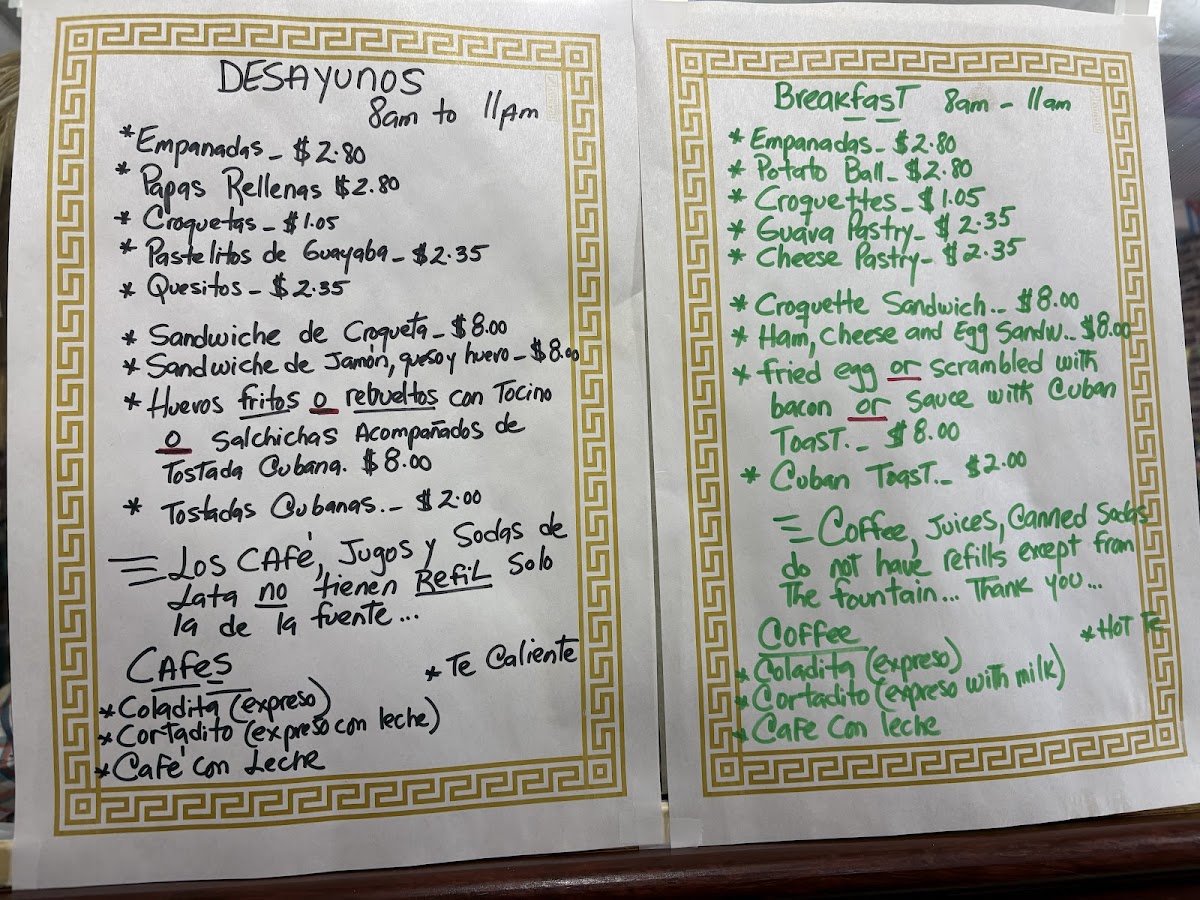 DESAYUNOS
8am to 11Am
* Empanadas - $2.80
* Papas Rellenas $2.80
* Croquetas - $1.05
* Pastelitos de Guayaba - $2.35
* Quesitos - $2.35
* Sandwiche de Croqueta - $8.00
* Sandwiche de Jamón, queso y huero - $8.00
* Huevos fritos o rebueltos con Tocino
o Salchichas Acompañados de
Tostada Cubana. $8.00
* Tostadas Cubanas.- $2.00
Los CAfé, Jugos y Sodas de
Lata no tienen Refil Solo
la de la fuente...
CAfes
* Te Caliente
* Coladita (expreso)
* Cortadito (expreso con leche)
* Café con Leche
Breakfast 8am - 11am
* Empanadas - $2.80
* Potato Ball - $2.80
* Croquettes - $1.05
* Guava Pastry - $2.35
* Cheese Pastry - $2.35
* Croquette Sandwich.. $8.00
* Ham, Cheese and Egg Sandw.. $8.00
* fried egg or scrambled with
bacon or Sauce with Cuban
Toast.- $8.00
* Cuban Toast.- $2.00
= Coffee, Juices, Canned Sodas
do not have refills except from
The fountain... Thank you...
Coffee
* Hot Te
* Coladita (expreso)
* Cortadito (expreso with milk)
* Cafe Con leche